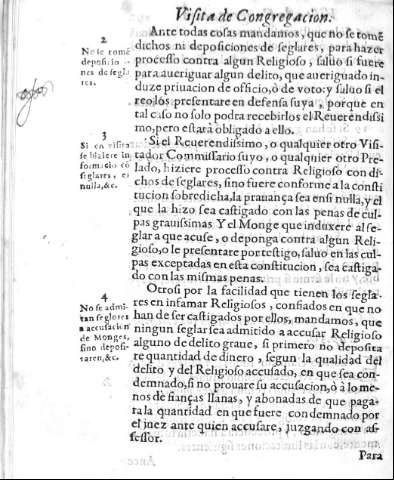 Visita de Congregacion.
2
No se tomẽ
deposicio
nes de segla
res.
Ante todas cosas mandamos, que no se tomẽ
dichos ni deposiciones de seglares, para hazer
processo contra algun Religioso, saluo si fuere
para aueriguar algun delito, que aueriguado in-
duze priuacion de officio, ò de voto: y saluo si el
reo los presentare en defensa suya, porque en
tal caso no solo podra recebirlos el Reuerendissi
mo, pero estarà obligado a ello.
3
Si en visita
se hiziere in
formacio cõ
seglares, es
nulla, &c.
Si el Reuerendissimo, o qualquier otro Visi-
tador Commissario suyo, o qualquier otro Pre-
lado, hiziere processo contra Religioso con di-
chos de seglares, sino fuere conforme a la consti
tucion sobredicha, la prauança sea en si nulla, y el
que la hizo sea castigado con las penas de cul-
pas grauissimas. Y el Monge que induxere al se-
glar a que acuse, o deponga contra algun Reli-
gioso, o le presentare por testigo, saluo en las cul-
pas exceptadas en esta constitucion, sea castiga-
do con las mismas penas.
4
No se admi-
tan seglares
a accusacion
de Monges,
sino deposi-
taren, &c.
Otrosi por la facilidad que tienen los segla-
res en infamar Religiosos, confiados en que no
han de ser castigados por ellos, mandamos, que
ningun seglar sea admitido a accusar Religioso
alguno de delito graue, si primero no deposita
re quantidad de dinero, segun la qualidad del
delito y del Religioso accusado, en que sea con-
demnado, si no prouare su accusacion, ò à lo me-
nos dè fianças llanas, y abonadas de que paga-
ra la quantidad en que fuere condemnado por
el juez ante quien accusare, juzgando con as-
sessor.
Para